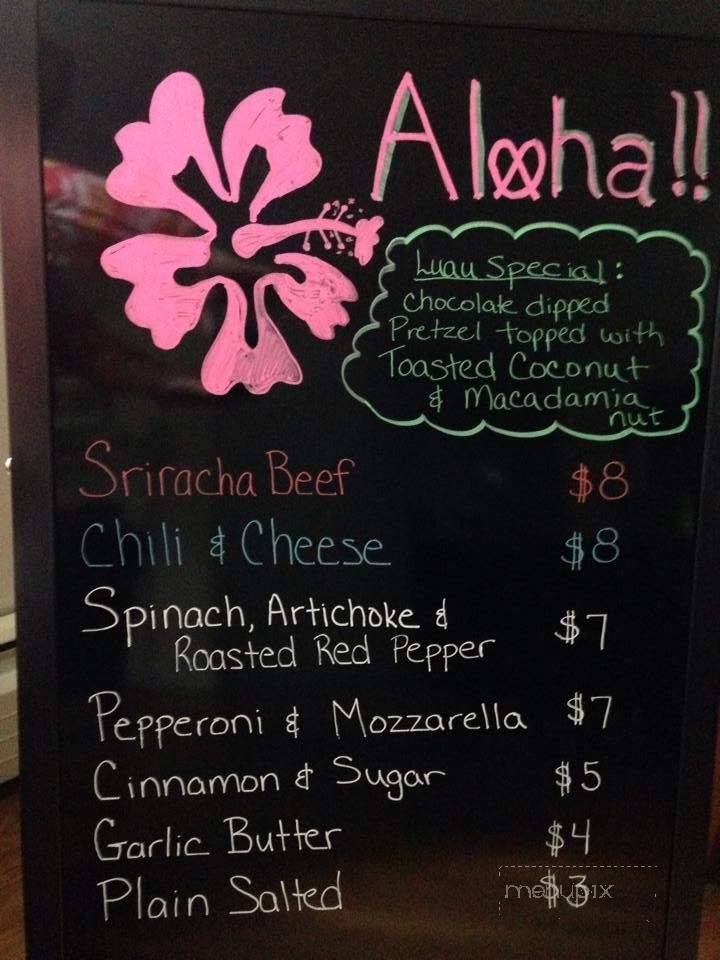 Aloha!!
Luau Special:
Chocolate dipped
Pretzel topped with
Toasted Coconut
& Macadamia
nut
Sriracha Beef $8
Chili & Cheese $8
Spinach, Artichoke &
Roasted Red Pepper $7
Pepperoni & Mozzarella $7
Cinnamon & Sugar $5
Garlic Butter $4
Plain Salted $3
menupix